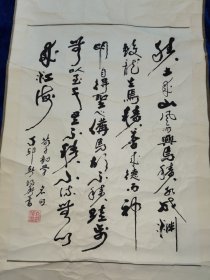 積土成山風雨興焉積水成渊
蛟龍生焉積善成德而神
明自得聖心備焉故不積跬步
無以至千里不積小流無以
成江海
荀子勸學名句
丁卯秋